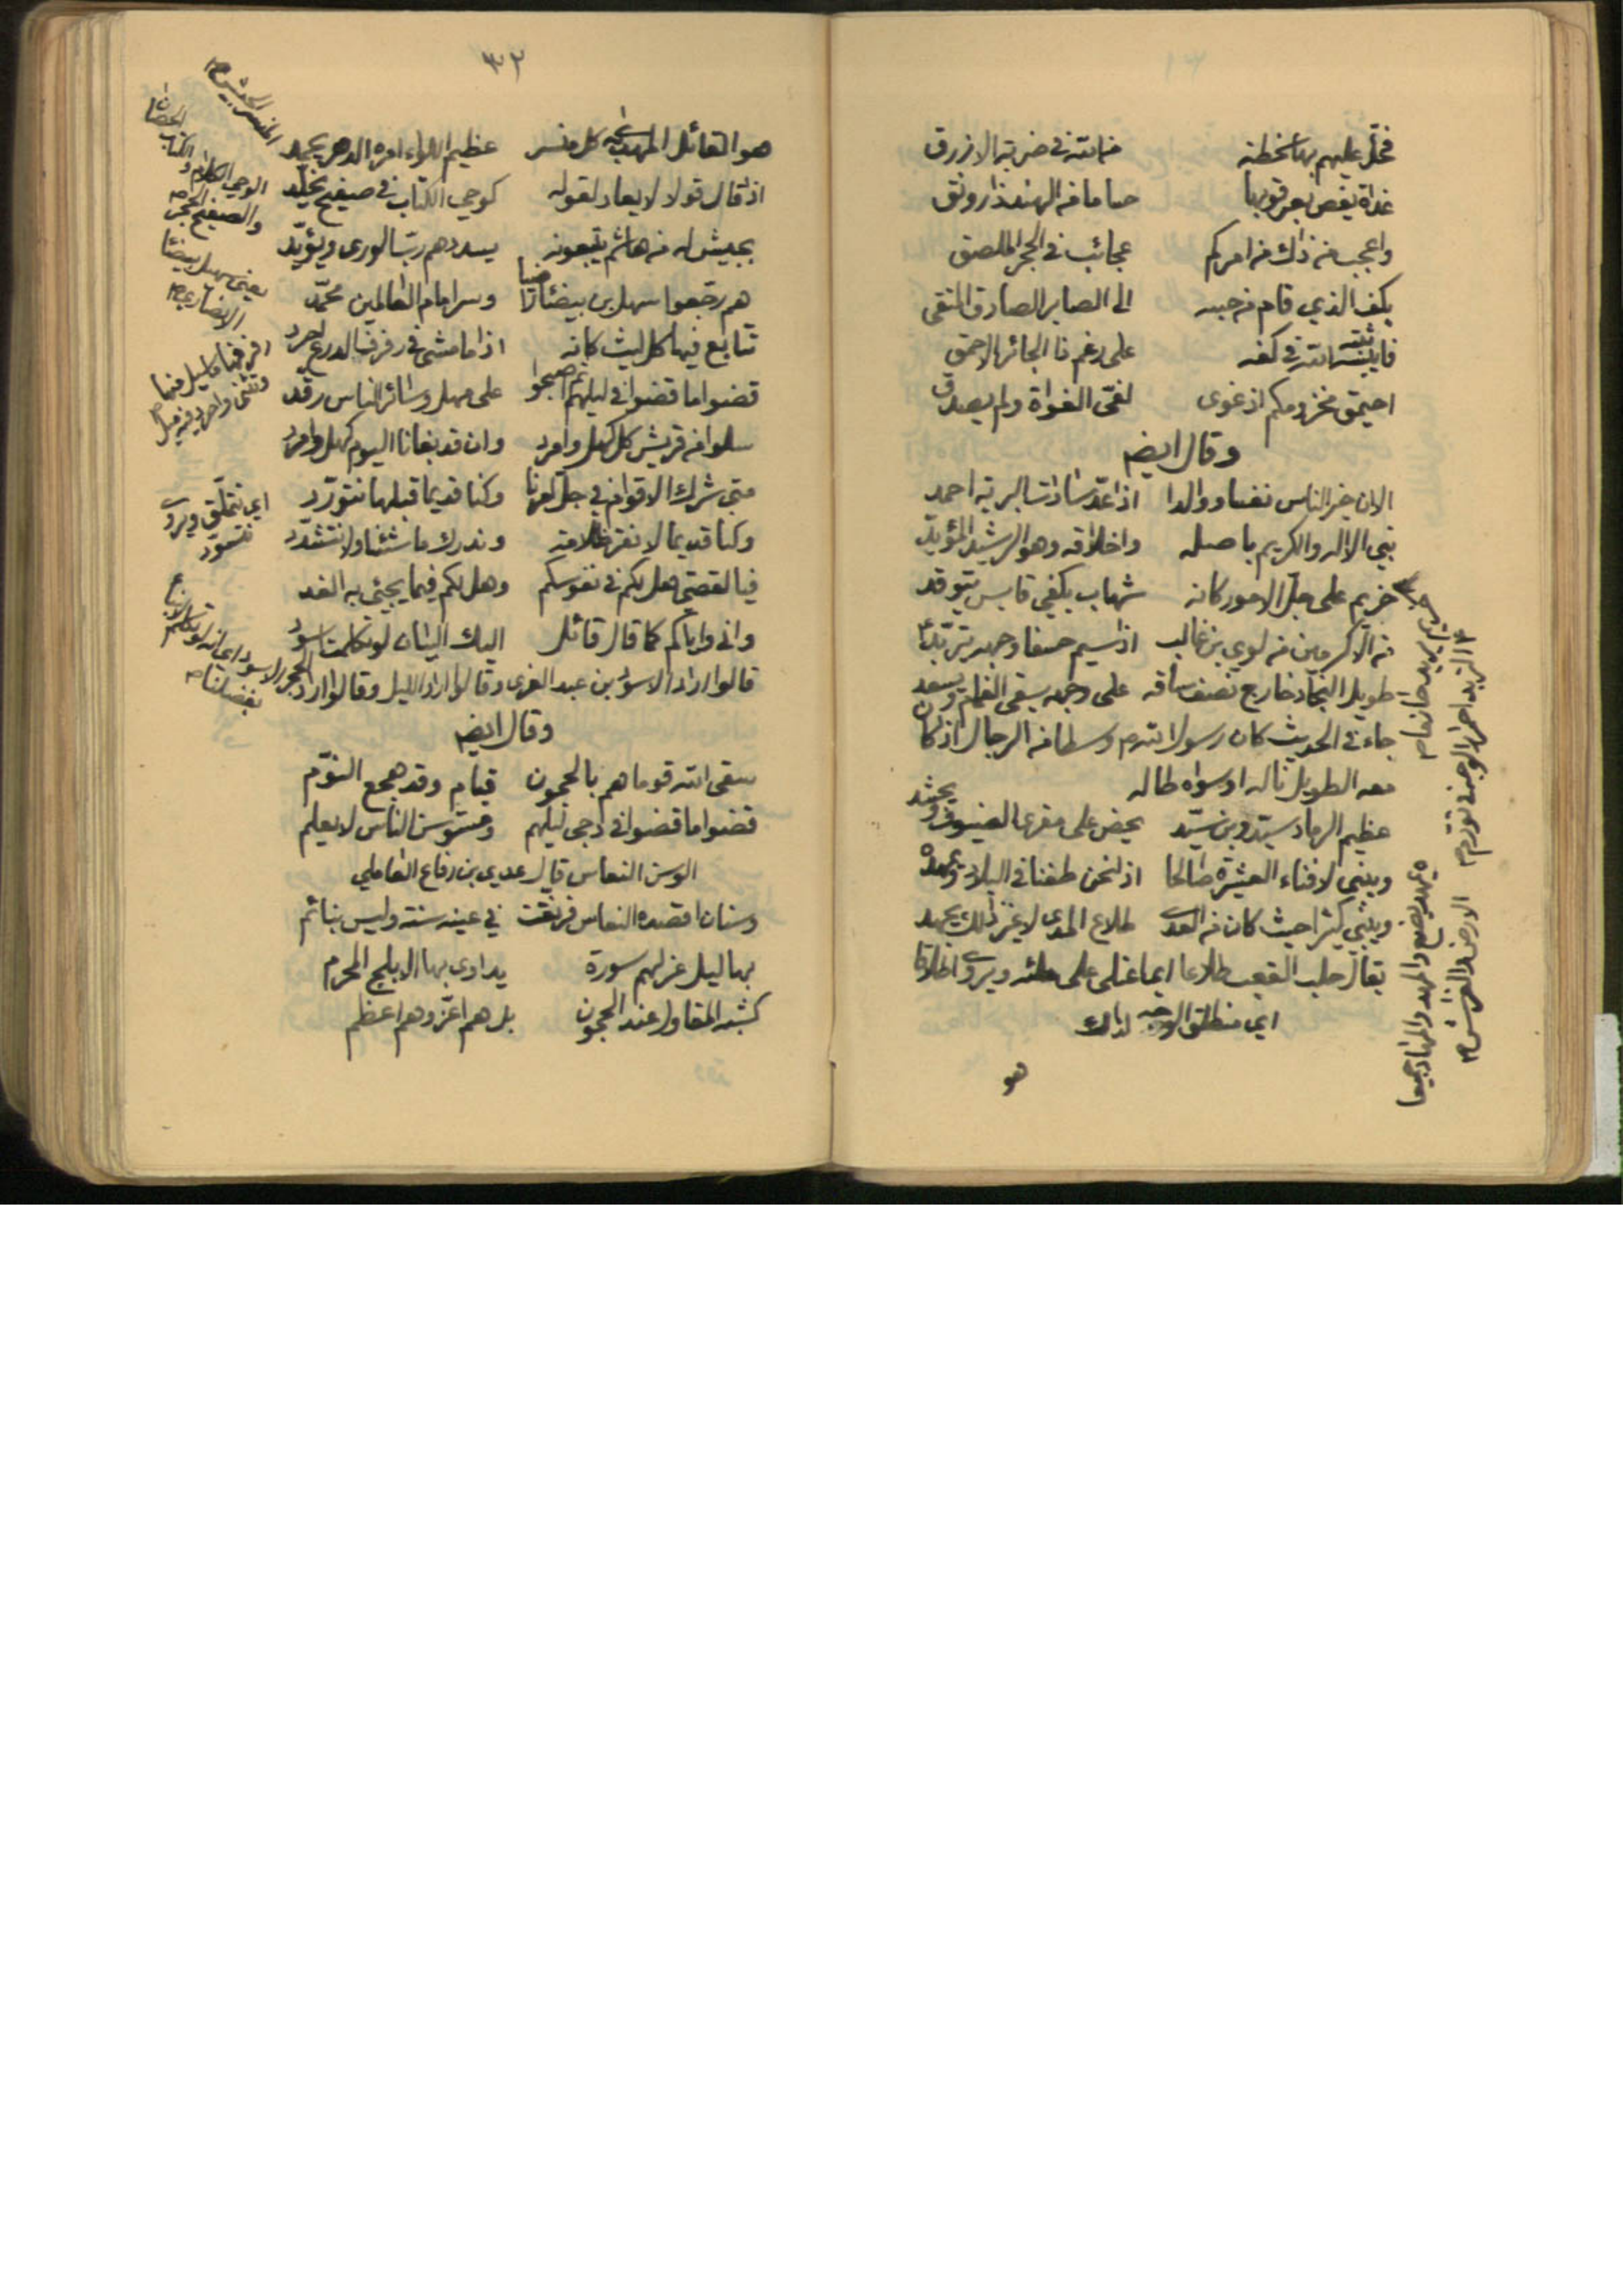 فحل عليهم بها سخطة من الله في ضربة الازرق
غداة يعض بعرقوبها حساما من الهند ذا رونق
واعجب من ذاك من امركم عجائب في الحجر الملصق
بكف الذي قام من حينه الى الصابر الصادق المتقي
فايبسه الله في كفه على رغم ذا الجائر الاحمق
احيمق مخزومكم اذ غوى لغي الغواة ولم يصدق
وقال ايضا
الا ان خير الناس نفسا ووالدا اذا عد سادات البرية احمد
نبي الاله والكريم باصله واخلاقه وهو الرشيد المؤيد
حزيم على جل الامور كانه شهاب بكفي قابس يتوقد
من الاكرمين من لوي بن غالب اذا سيم خسفا وجهه يتربد
طويل النجاد خارج نصف ساقه على وجهه يسقى الغمام ويسعد
جاء في الحديث كان رسول الله م وسطا من الرجال واذا كان
معه الطويل ناله او سواه طاله
عظيم الرماد سيد وبن سيد يحض على مقرى الضيوف ويحشد
ويبني لافناء العشيرة صالحا اذا نحن طفنا في البلاد ويمهد
ويبني كثيرا حيث كان من العدى طلاع المدى لا غير ذلك يجهد
يقال حلب القعب طلاعا اي ما غلى على ملئه ويروى اطلاقا
اي منطلق الوجه لذلك
هو
يمهد يصنع والمهد والمهاد جميعا
الارض والفراش م
٣٢
هو القائل المهدي به كل منسر عظيم اللواء امره الدهر يحمد
اذا قال قولا لا يعاد لقوله كوحي الكتاب في صفيح يخلد
بجيش له من هاشم يتبعونه يسددهم رب الورى ويؤيد
هم رجعوا سهل بن بيضاء راضيا وسر امام العالمين محمد
تتابع فيها كل ليث كانه اذا ما مشى في رفرف الدرع احرد
قضوا ما قضوا في ليلهم ثم اصبحوا على مهل وسائر الناس رقد
سلوا من قريش كل كهل وامرد وان قد بغانا اليوم كهل وامرد
متى شرك الاقوام في جل امرنا وكنا قديما قبلها نتودد
وكنا قديما لا نقر ظلامة وندرك ما شئنا ولا نتشدد
فيا لقصي هل لكم في نفوسكم وهل لكم فيما يجيئ به الغد
واني واياكم كما قال قائل اليك البيان لو تكلمت اسود
قالوا اراد الاسود بن عبد العزى وقالوا اراد الليل وقالوا اراد الحجر الاسود
وقال ايضا
سقى الله قوما هم بالحجون قيام وقد هجع النوم
قضوا ما قضوا في دجى ليلهم ومستوسن الناس لا يعلم
الوسن النعاس قال عدي بن رفاع العاملي
وسنان اقصده النعاس فرنقت في عينه سنة وليس بنائم
بهاليل غر لهم سورة يداوى بها الابلج المجرم
كشبه المقاول عند الحجون بل هم اعز وهم اعظم
المنسر الجيش م
الوحي الكلام والكتاب ايضا
والصفيح الحجر م
يعني سهل بن بيضاء
الانصاري م
اي نتملق ويروى
نتسود